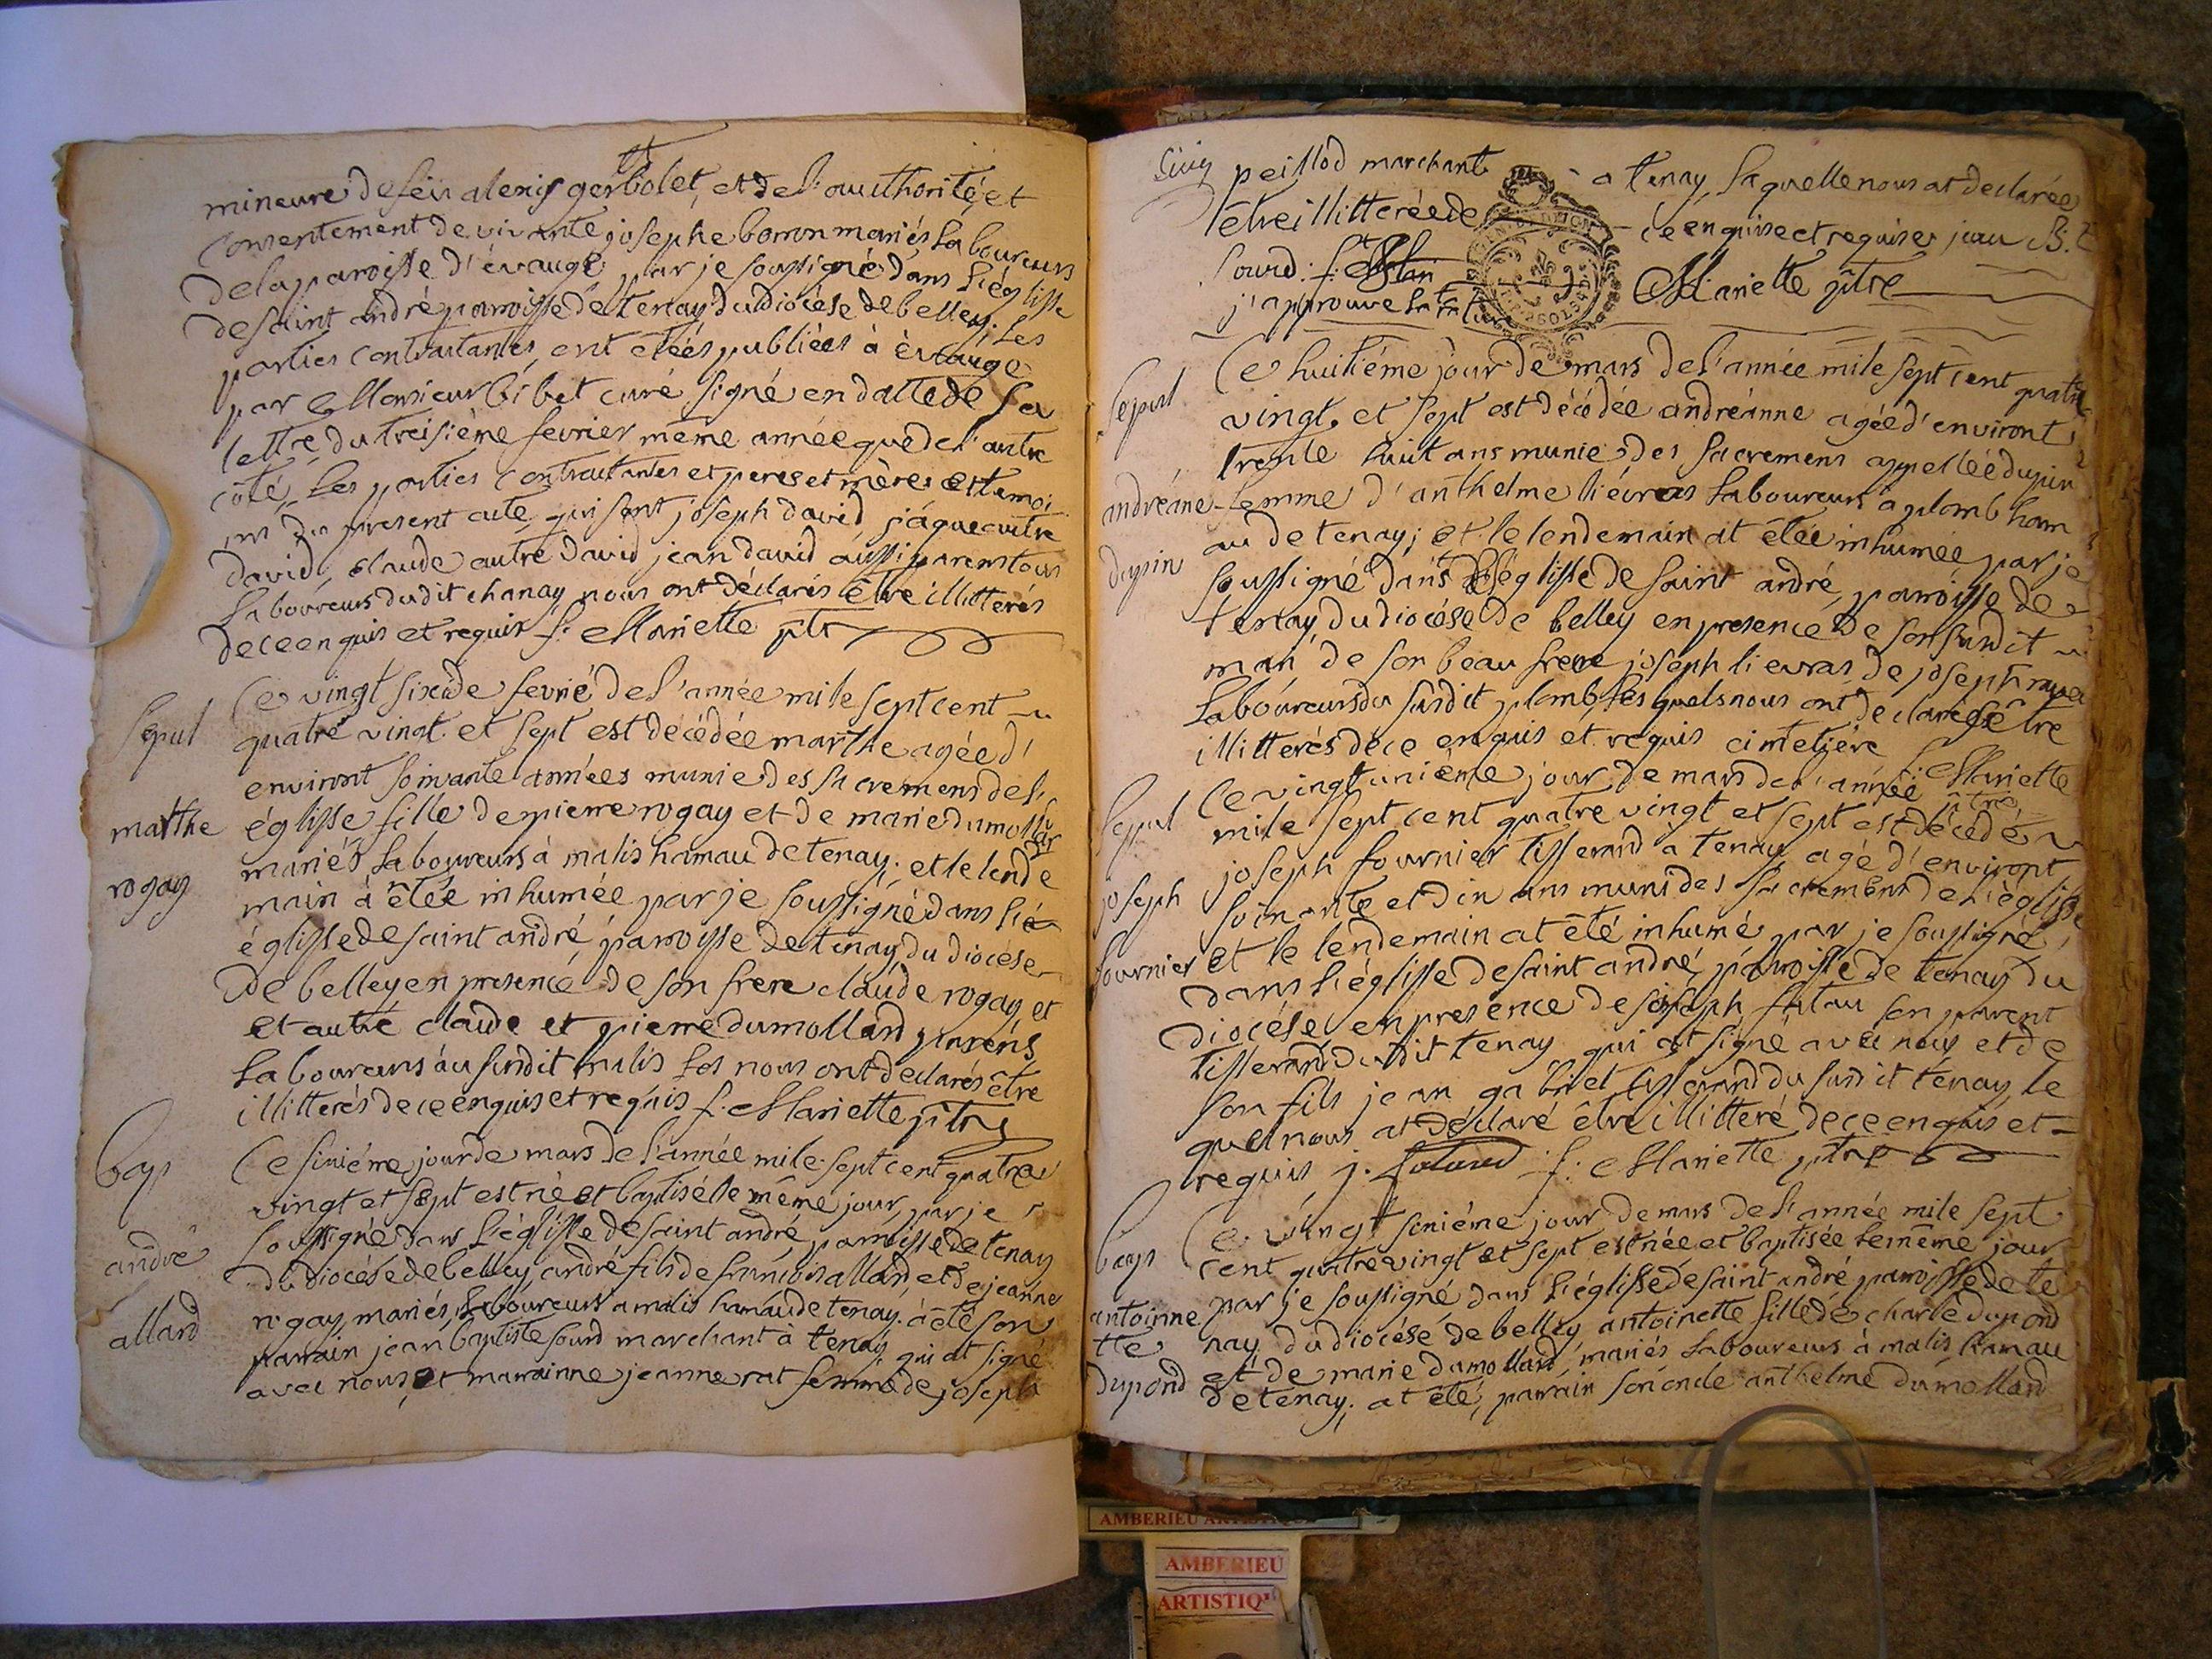 mineure de feu alexis gerbolet, et de l'authorité, et
consentement de vivante josephe borron mariés laboureurs
de la paroisse d'évauge par je soussigné dans l'églisse
de saint andré paroisse de tenay du diocèse de belley. les
parties contractantes ont etéés publiées à èvauge
par Monsieur bibet curé signé en datte de sa
lettre du treisième fevrier même année que de l'autre
côté, les parties contractantes et peres et mères et temoi
ins du present acte qui sont joseph david jâque autre
david, claude autre david jean david aussi parens tous
laboureurs dudit chanay nous ont déclarés être illitterés
de ce enquis et requis f. Mariette ptre
Sepul
marthe
rogay
Ce vingt sixide fevrié de l'année mile sept cent
quatre vingt et sept est décédée marthe agée d'
environt soixante années munie des sacremens de l'
églisse fille de pierre rogay et de marie dumollar
mariés laboureurs à malis hamau de tenay. et le lende
main à êtée inhumée par je soussigné dans l'ié
églisse de saint andré, paroisse de tenay du diocése
de belley en presence de son frere claude rogay et
et autre claude et pierre dumollard parens
laboureurs au susdit malis les nous ont declarés être
illitterés de ce enquis et requis f. Mariette ptre
bap
andré
allard
Ce sixiéme jour de mars de l'année mile sept cent quatre
vingt et sept est né et baptisé le même jour par je
soussigné dans l'iéglisse de saint andré paroisse de tenay
du diocése de belley, andré fils de francois allard, et de jeanne
rogay, mariés, laboureurs a malis hamau de tenay. à èté son
parrain jean baptiste sourd marchant à tenay qui at signé
avec nous, et marrainne jeanne rat femme de joseph
peillod marchant a tenay, laquelle nous at declarée
être illitterée de ce enquise et requise jean B.t
sourd. f. Mari Mariette ptre
j'approuve la
Sepul
andréane
dupin
Ce huitiéme jour de mars de l'année mile sept cent quatre
vingt, et sept est décédée andréanne agée d'environt
trente huit ans munie des sacremens appellée dupin
femme d'anthelme liévras laboureurs à plomb ham
au de tenay; et le lendemain at êtée inhumée par je
soussigné dans l'églisse de saint andré, paroisse de
tenay du diocése de belley en presence de son susdit
mari de son beau frere joseph lievras de joseph
laboureurs du susdit plomb lesquels nous ont declarés être
illitterés de ce enquis et requis cimetiére f. Mariette
ptre
Sepul
joseph
fournier
Ce vingt uniéme jour de mars de l'année
mile sept cent quatre vingt et sept est décédé
joseph fournier tisserand à tenay agé d'environt
soixante et dix ans muni des sacremens de l'iéglisse
et le lendemain at été inhumé par je soussigné,
dans l'iéglisse de saint andré, paroisse de tenay du
diocése en presence de joseph son parent
tisserand dudit tenay qui at signé avec nous et de
son fils jean gabriel tisserand du susdit tenay, le
quel nous at déclaré être illitteré de ce enquis et
requis j. f. Mariette ptre
bap
antoinne
tte
dupond
Ce vingt sixiéme jour de mars de l'année mile sept
cent quatre vingt et sept est née et baptisée le même jour
par je soussigné dans l'iéglisse de saint andré, paroisse de te
nay du diocése de belley antoinette fille de charle dupond
et de marie dumollard, mariés laboureurs à malis hamau
de tenay, at été, parrain son oncle anthelme dumollard
AMBERIEU ARTISTIQUE
AMBERIEU
ARTISTIQ